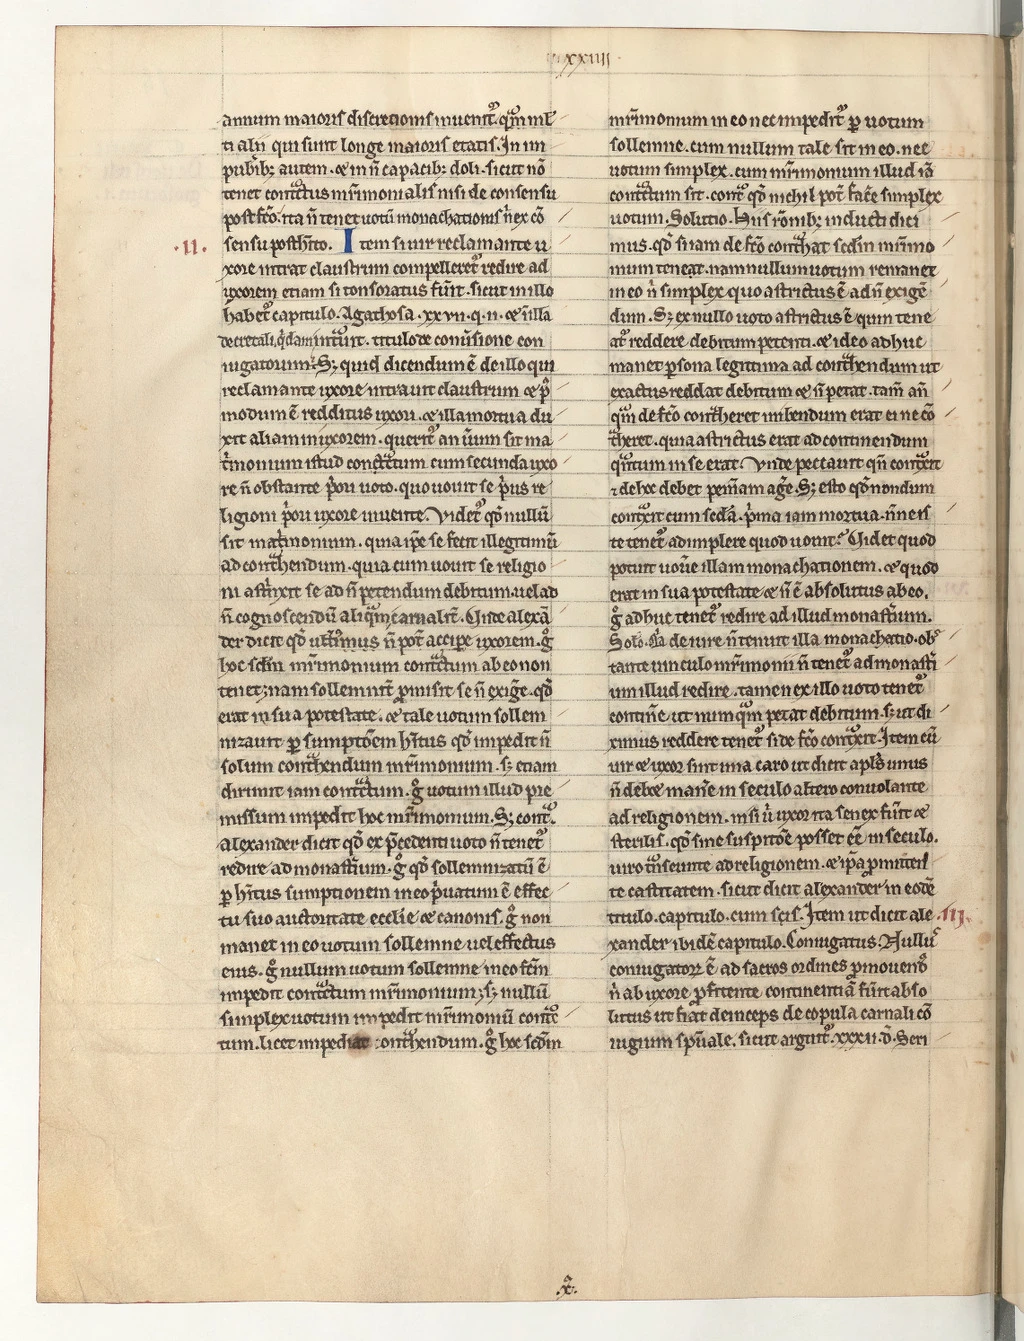 xxiiii
annum maioris discretionis inuenit᷒. qm̄ ml̄
ti alii qui sunt longe maioris etatis. In im
pubib; autem. ⁊ in ñ capacib; doli. sicut nō
tenet contc̄tus mr̄imonialis nisi de consensu
post fc̄o. ita ñ tenet uotū monachationis ñ ex cō
.ii. sensu posthito. Item si uir reclamante u
xore intrat claustrum compelleret᷒ redire ad
uxorem etiam si tonsoratus fūit. sicut in illo
habet᷒ capitulo. Agathosa. xxvii. q. ii. ⁊ ī illa
decretali. q̇dam intūit. titulo de conũsione con
iugatorum. S; quid dicendum ē de illo qui
reclamante uxore intrauit claustrum ⁊ p̄
modum ē redditus uxori. ⁊ illa mortua du
xit aliam in uxorem. querit᷒ an ũum sit ma
t̄monium istud contc̄tum cum secunda uxo
re ñ obstante p̄ori uoto. quo uouit se p̄us re
ligioni p̄ori uxore uiuente. Videt᷒ qd̄ nullū
sit mat̄imonium. quia ip̄e se fecit illegitimū
ad cont̄hendum. quia cum uouit se religio
ni astr̄xit se ad ñ petendum debitum. uel ad
ñ cognoscendū aliq̄m carnalit̄. Vnde alexā
der dicit qd̄ ult̄imus ñ pot̄ accip̄e uxorem. g̊
hoc scd̄m mr̄imonium contc̄tum ab eo non
tenet; nam sollempnit̄ p̄misit se ñ exiḡe. qd̄
erat in sua potestate. ⁊ tale uotum sollem
nizauit p̱ sumptōem hītus qd̄ impedit ñ
solum cont̄hendum mr̄imonium. s; etiam
dirimit iam contc̄tum. g̊ uotum illud pre
missum impedit hoc mr̄imonium. S; cont̄.
alexander dicit qd̄ ex p̄cedenti uoto ñ tenet᷒
redire ad monast̄ium. g̊ qd̄ sollemnizatū ē
p̱ hītus sumptionem in eo p̄uatum ē effec
tu suo auctoritate ecclie ⁊ canonis. g̊ non
manet in eo uotum sollemne uel effectus
eius. g̊ nullum uotum sollemne in eo fc̄m
impedit contc̄tum mr̄imonium; s; nullū
simplex uotum impedit mr̄imoniū contc̄
tum. licet impediat contrhendum. g̊ hoc scd̄m
mr̄imonium in eo nec impedit᷒ p̱ uotum
sollemne. cum nullum tale sit in eo. nec
uotum simplex. cum mr̄imonium illud iā
contc̄tum sit. cont̄ qd̄ nichil pot̄ fac̄e simplex
uotum. Solutio. Hiis rōnib; inducti dici
mus. qd̄ si iam de fc̄o cont̄hat scd̄m mr̄imo
nium teneat. nam nullum uotum remanet
in eo ñ simplex quo astrictus ē ad ñ exigē
dum. S; ex nullo uoto astrictus ē quin tene
at᷒ reddere debitum petenti. ⁊ ideo adhuc
manet p̱sona legitima ad cont̄hendum ut
exactus reddat debitum ⁊ ñ petat. tam̄ añ
qm̄ de fc̄o cont̄heret inhibendum erat ei ne cō
t̄heret. quia astrictus erat ad continendum
q̄ntum in se erat. Vnde peccauit qñ cont̄xit
⁊ de hoc debet penīam aḡe. S; esto qd̄ nondum
cont̄xit cum scd̄a. p̄ma iam mortua. ñne is
te tenet᷒ adimplere quod uouit? Videt quod
potuit uoũe illam monachationem. ⁊ quod
erat in sua potestate ⁊ ñ ē absolutus ab eo.
g̊ adhuc tenet᷒ redire ad illud monast̄ium.
Solō. de iure ñ tenuit illa monachatio. obs
tante uinculo mr̄imonii ñ tenet᷒ ad monast̄i
um illud redire. tamen ex illo uoto tenet᷒
contine. ut numq̄m petat debitum. s; ut di
ximus reddere tenet᷒ si de fc̄o cont̄xit. Item cū
uir ⁊ uxor sint una caro ut dicit apl̄s unus
ñ debet mane in seculo altero conuolante
ad religionem. nisi ũ uxor ita senex fūit ⁊
sterilis. qd̄ sine suspitōe posset ēē in seculo.
uiro tn̄seunte ad religionem. ⁊ ip̄a p̄mitten
te castitatem. sicut dicit alexander in eodē
titulo. capitulo. cum sis. Item ut dicit ale .iii.
xander ibidē capitulo. Coniugatus. Nullus
coniugator̄ ē ad sacros ordines p̄mouend᷒
ñ ab uxore p̄fitente continentiā fūit abso
lutus ut fiat deinceps de copula carnali cō
iugium sp̄uale. sicut arguit᷒. xxxii. d̄. Seri
.x.